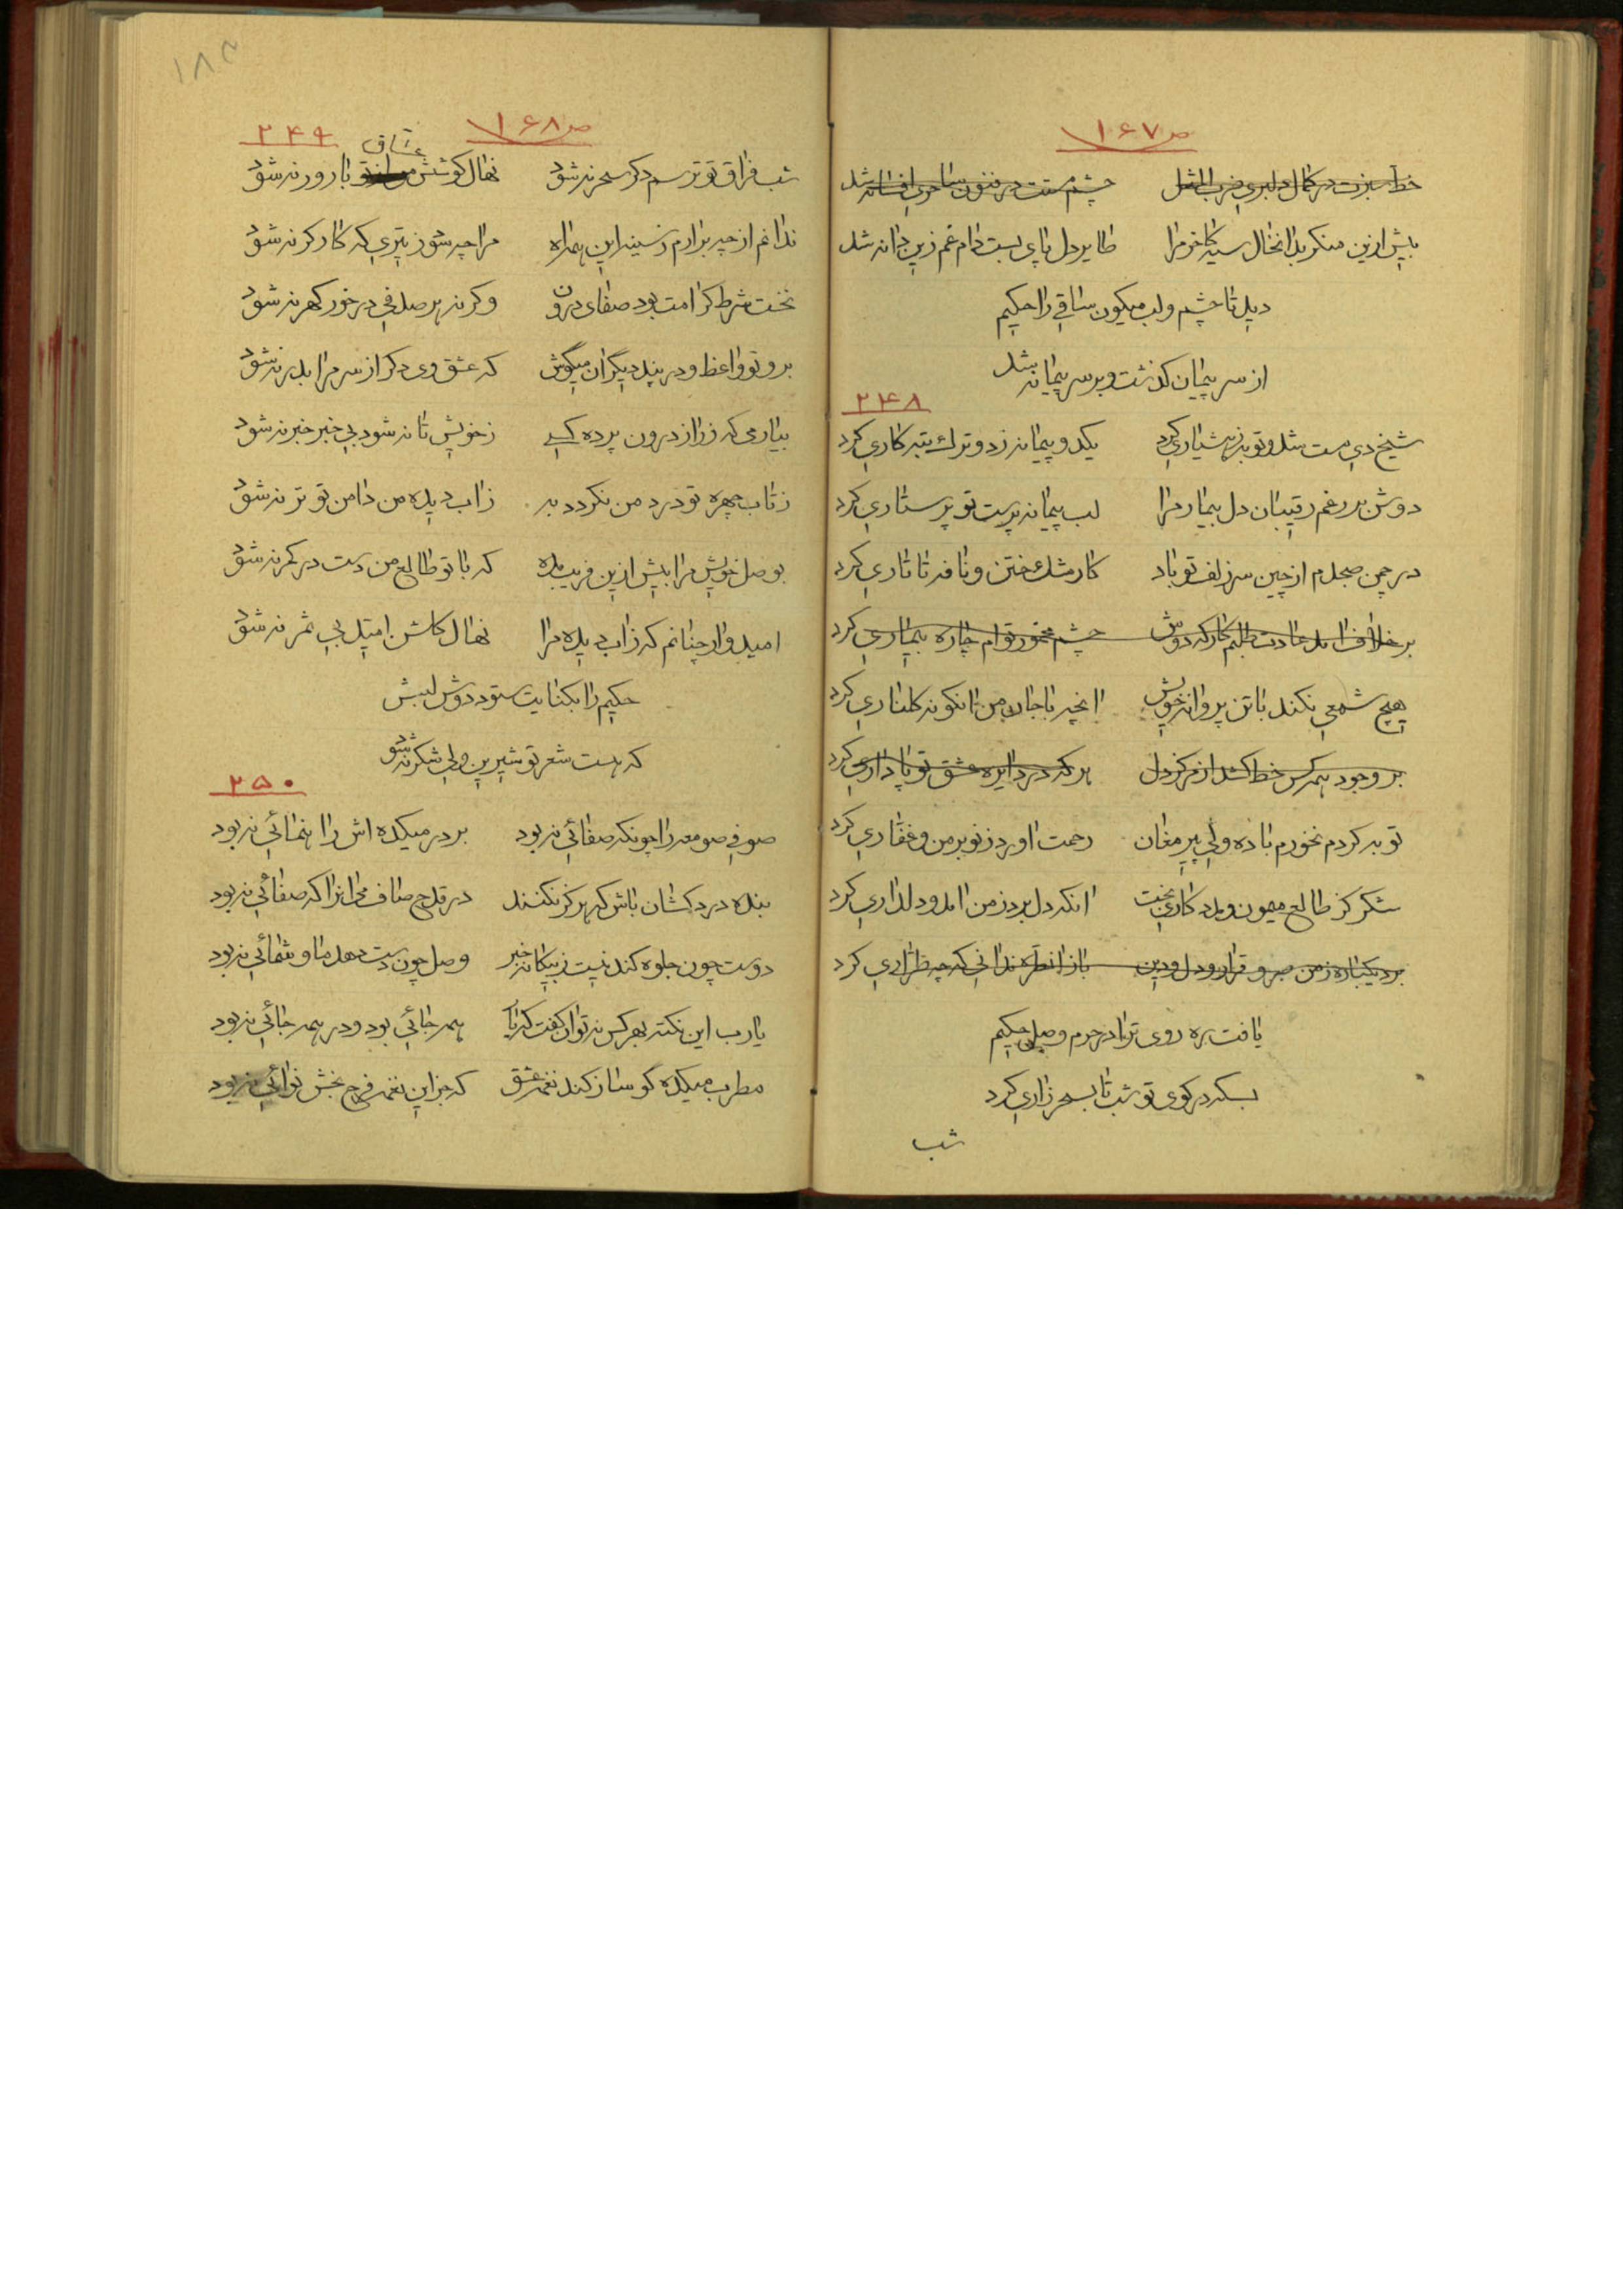 ص ۱۶۷
خط سبزت در کمال دلبری ضرب المثل چشم مستت در فنون ساحری افسانه شد
بیش ازین منکر بدانخال سیه کاخر مرا طایر دل پای بست دام غم زین دانه شد
دید تا چشم و لب میکون ساقی را حکیم
از سر پیمان کذشت و بر سر پیمانه شد
۲۴۸
شیخ دی مست شد و توبه زهشیاری کرد یکدو پیمانه زد و ترک تبه کاری کرد
دوش بر رغم رقیبان دل بیمار مرا لب پیمانه پرست تو پرستاری کرد
در چمن صبحدم از چین سر زلف تو باد کار مشک ختن و نافه تاتاری کرد
بر خلاف امد عادت طلبم کار که دوش چشم مخمور توام چاره بیماری کرد
هیچ شمعی نکند با تن پروانه خویش انچه با جان من انکونه کلناری کرد
بر وجود همه کس خط کشد از مرکز دل هر که در دایره عشق تو پاداری کرد
توبه کردم نخورم باده ولی پیر مغان رحمت اورد ز نو بر من و غفاری کرد
شکر کز طالع میمون و مددکاری بخت انکه دل برد ز من امد و دلداری کرد
برد یکباره ز من صبر و قرار و دل و دین باز انطره ندانی که چه طراری کرد
یافت بره روی ترا در حرم وصل حکیم
بسکه در کوی تو شب تا بسحر زاری کرد
شب
۱۸۳
ص ۱۶۸
۲۴۹
عشاق
شب فراق تو ترسم دکر سحر نشود نهال کوشش بارور نشود
ندانم از چه برارم ز سینه این همه اه مرا چه سود ز تیری که کارکر نشود
نخست شرط کرامت بود صفای درون وکرنه هر صدفی در خور کهر نشود
برو تو واعظ و در پند دیگران میکوش که عشق وی دکر از سر مرا بدر نشود
بیار می که ز راز درون پرده کسی ز خویش تا نشود بی خبر خبر نشود
ز تاب چهره تو درد من نکردد به ز اب دیده من دامن تو تر نشود
بوصل خویش مرا بیش ازین فریب مده که با تو طالع من دست در کمر نشود
امیدوار چنانم که ز اب دیده مرا نهال کلشن امید بی ثمر نشود
حکیم را بکنایت ستود دوش لبش
که هست شعر تو شیرین ولی شکر نشود
۲۵۰
صوفی صومعه را چونکه صفائی نبود بر در میکده اش راهنمائی نبود
بنده دردکشان باش که هرگز نکنند در قدح صاف می انرا که صفائی نبود
دوست چون جلوه کند نیست ز بیکانه خبر وصل چون دست دهد ما و شمائی نبود
یارب این نکته بهر کس نتوان گفت که یار همه جائی بود و در همه جائی نبود
مطرب میکده کو ساز کند نغمه عشق که جز این نغمه فرح بخش نوائی نبود